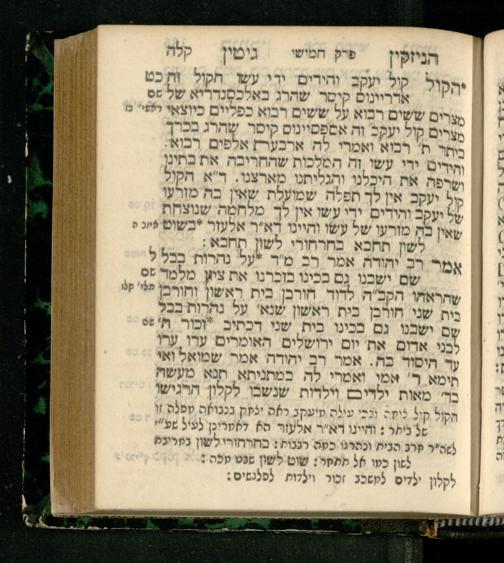 הניזקין פרק חמישי גיטין קלה
*הקול קול יעקב והידים ידי עשו הקול זה
אדריינוס קיסר שהרג באלכסנדריא של
מצרים ששים רבוא על ששים רבוא כפליים כיוצאי
מצרים קול יעקב זה אספסיינוס קיסר שהרג בכרך
ביתר ת' רבוא ואמרי לה ארבעת אלפים רבוא
והידים ידי עשו זה המלכות שהחריבה את בתינו
ושרפה את היכלנו והגליתנו מארצנו. ד"א הקול
קול יעקב אין לך תפלה שמועלת שאין בה מזרעו
של יעקב והידים ידי עשו אין לך מלחמה שנוצחת
שאין בה מזרעו של עשו והיינו דא"ר אלעזר *בשוט
לשון תחבא בחרחורי לשון תחבא:
אמר רב יהודה אמר רב מ"ד *על נהרות בבל
שם ישבנו גם בכינו בזכרנו את ציון מלמד
שהראהו הקב"ה לדוד חורבן בית ראשון וחורבן
בית שני חורבן בית ראשון שנא' על נהרות בבל
שם ישבנו גם בכינו בית שני דכתיב *זכור ה'
לבני אדום את יום ירושלים האומרים ערו ערו
עד היסוד בה. אמר רב יהודה אמר שמואל ואי
תימא ר' אמי ואמרי לה במתניתא תנא מעשה
בד' מאות ילדים וילדות שנשבו לקלון הרגישו
הקול קול נימה ובכי עולה מיעקב ראה יצחק בנבואה מפלה זו
של ביתר: והיינו דא"ר אלעזר
לשון כמו אל תתחר: שוט לשון שבט מכה:
לקלון ילדים למשכב זכור וילדות לפלגשים: